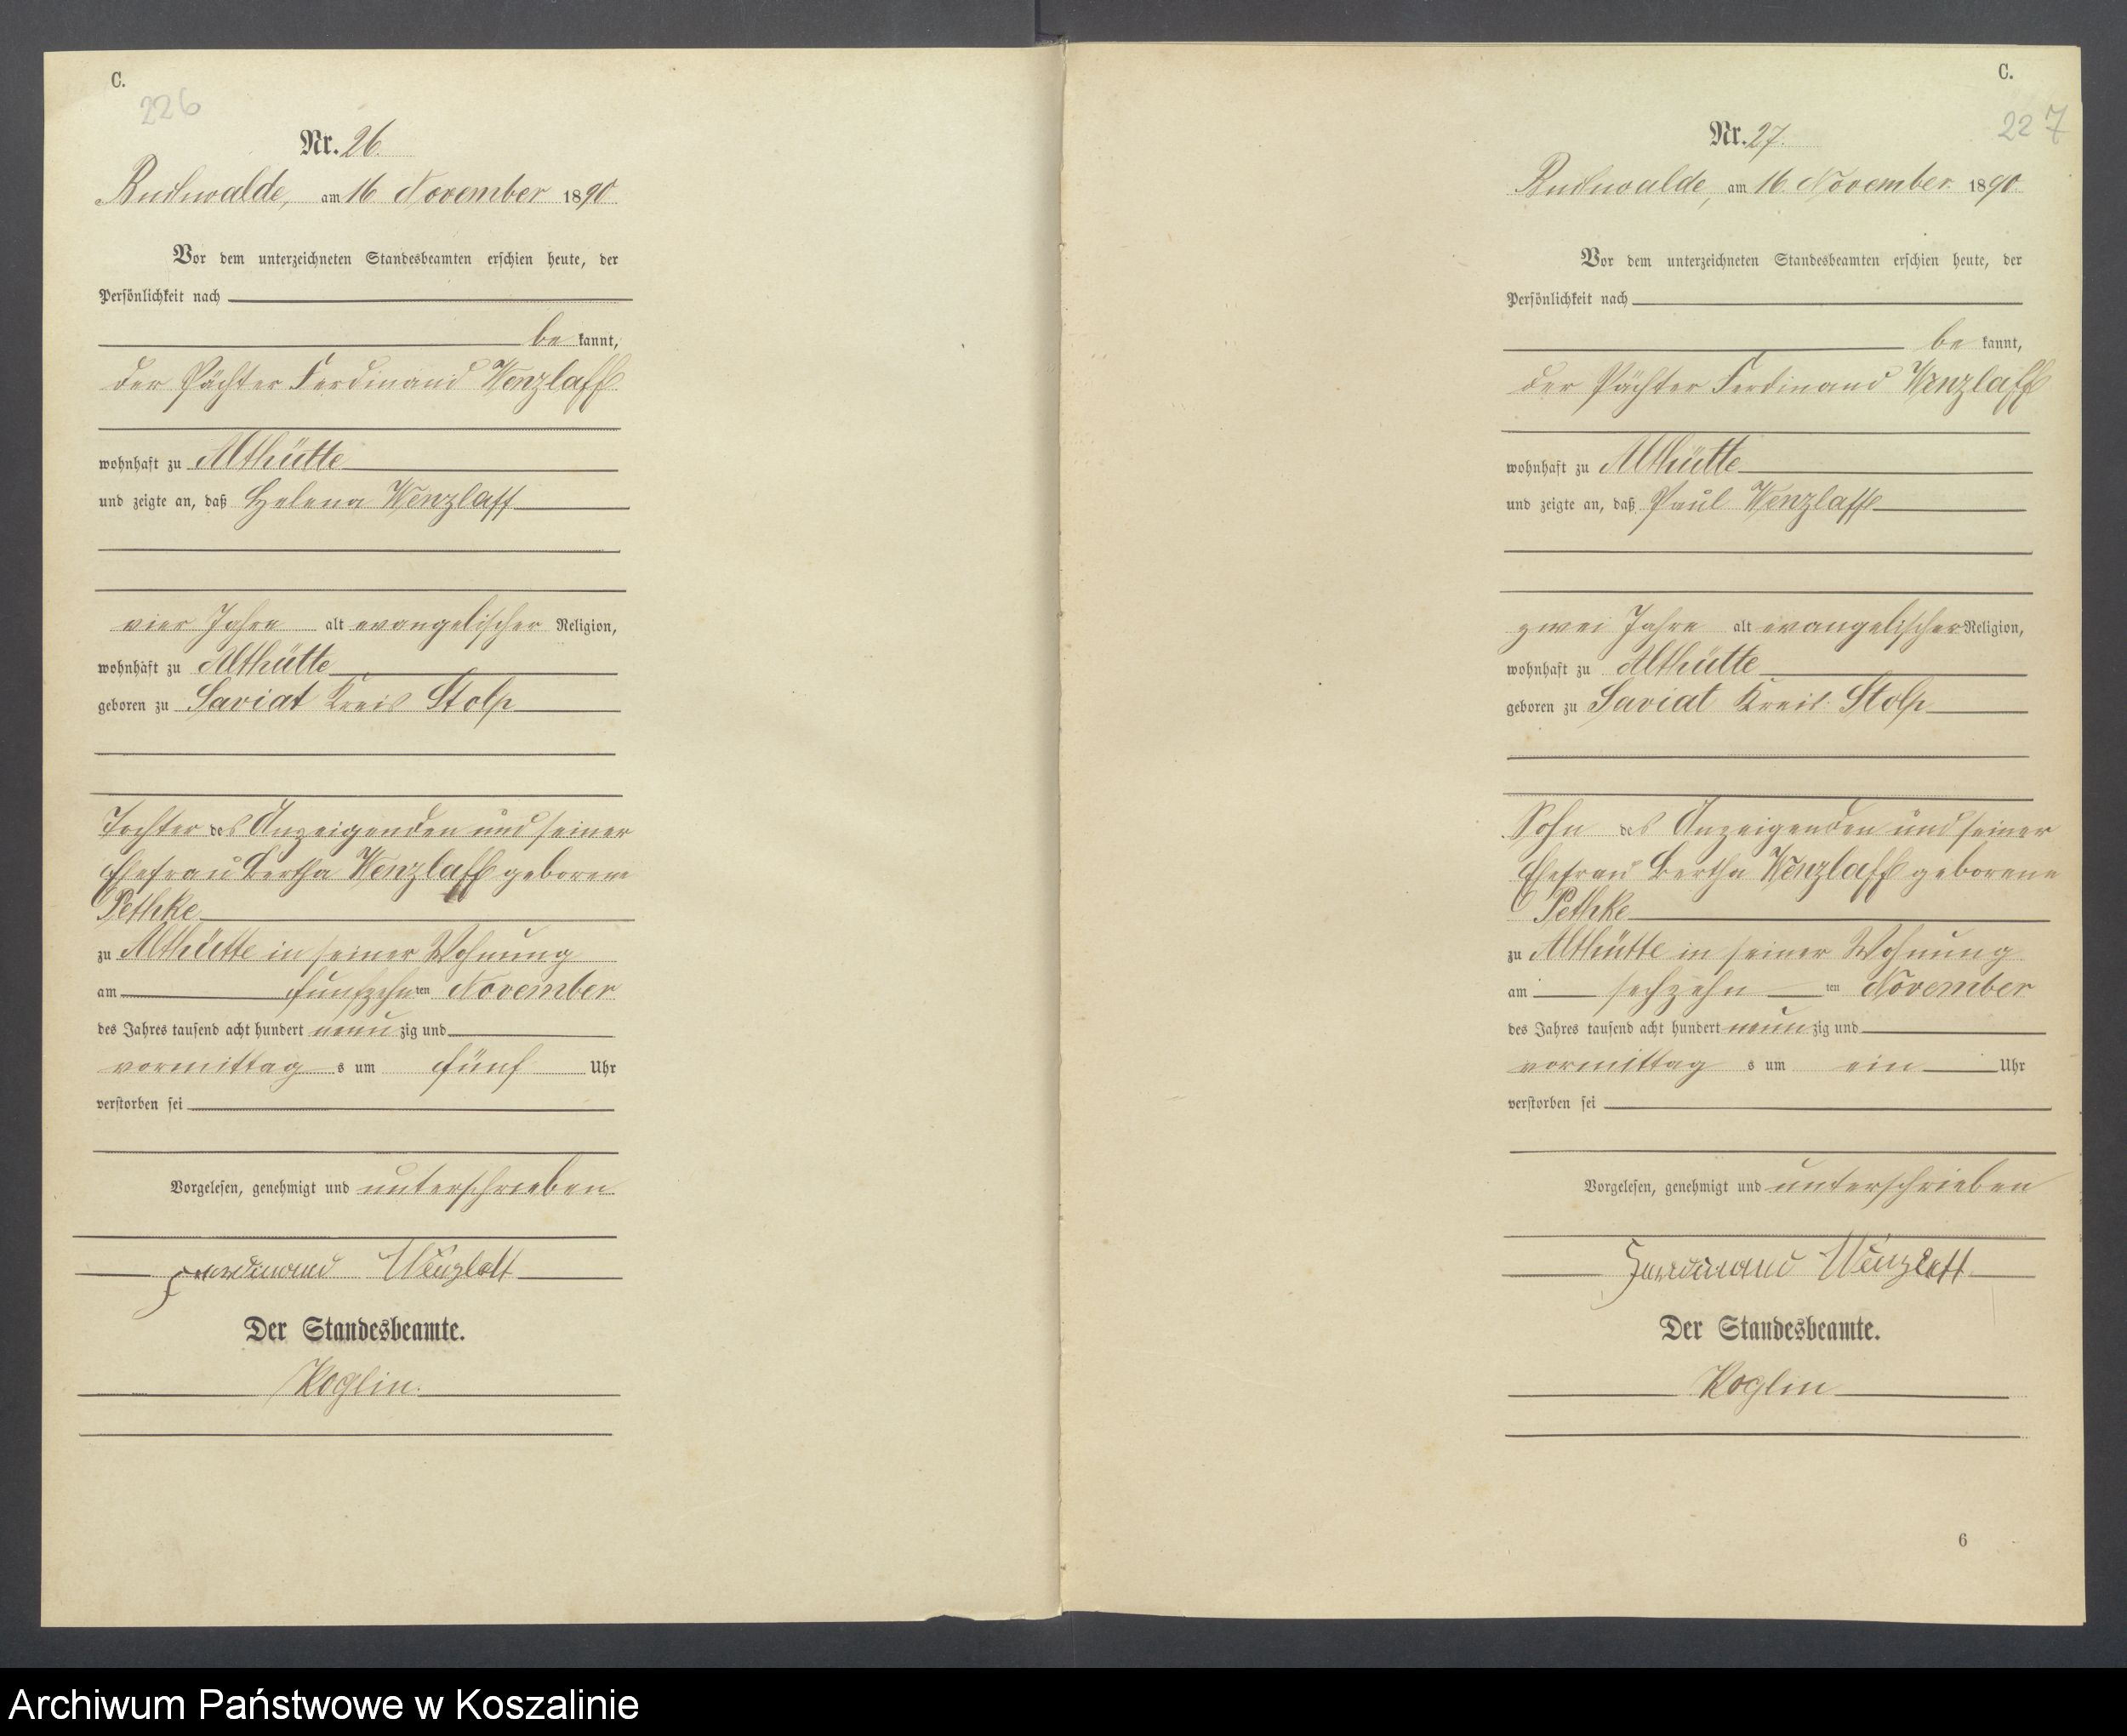 C.
226
Nr. 26.
Buchwalde, am 16 November 1890.
Vor dem unterzeichneten Standesbeamten erschien heute, der
Persönlichkeit nach
be kannt,
der Pächter Ferdinand Wenzlaff
wohnhaft zu Althütte
und zeigte an, daß Helena Wenzlaff
vier Jahre alt evangelischer Religion,
wohnhaft zu Althütte
geboren zu Saviat Kreis Stolp
Tochter des Anzeigenden und seiner
Ehefrau Bertha Wenzlaff geborene
Pethke
zu Althütte in seiner Wohnung
am funfzehnten November
des Jahres tausend acht hundert neun zig und
vormittag s um fünf Uhr
verstorben sei
Vorgelesen, genehmigt und unterschrieben
Ferdinand Wenzlaff
Der Standesbeamte.
Koglin.
C.
227
Nr. 27.
Buchwalde, am 16. November 1890.
Vor dem unterzeichneten Standesbeamten erschien heute, der
Persönlichkeit nach
be kannt,
der Pächter Ferdinand Wenzlaff
wohnhaft zu Althütte
und zeigte an, daß Paul Wenzlaff
zwei Jahre alt evangelischer Religion,
wohnhaft zu Althütte
geboren zu Saviat Kreis Stolp
Sohn des Anzeigenden und seiner
Ehefrau Bertha Wenzlaff geborene
Pethke
zu Althütte in seiner Wohnung
am sechzehn ten November
des Jahres tausend acht hundert neun zig und
vormittag s um ein Uhr
verstorben sei
Vorgelesen, genehmigt und unterschrieben
Ferdinand Wenzlaff
Der Standesbeamte.
Koglin
6
Archiwum Państwowe w Koszalinie